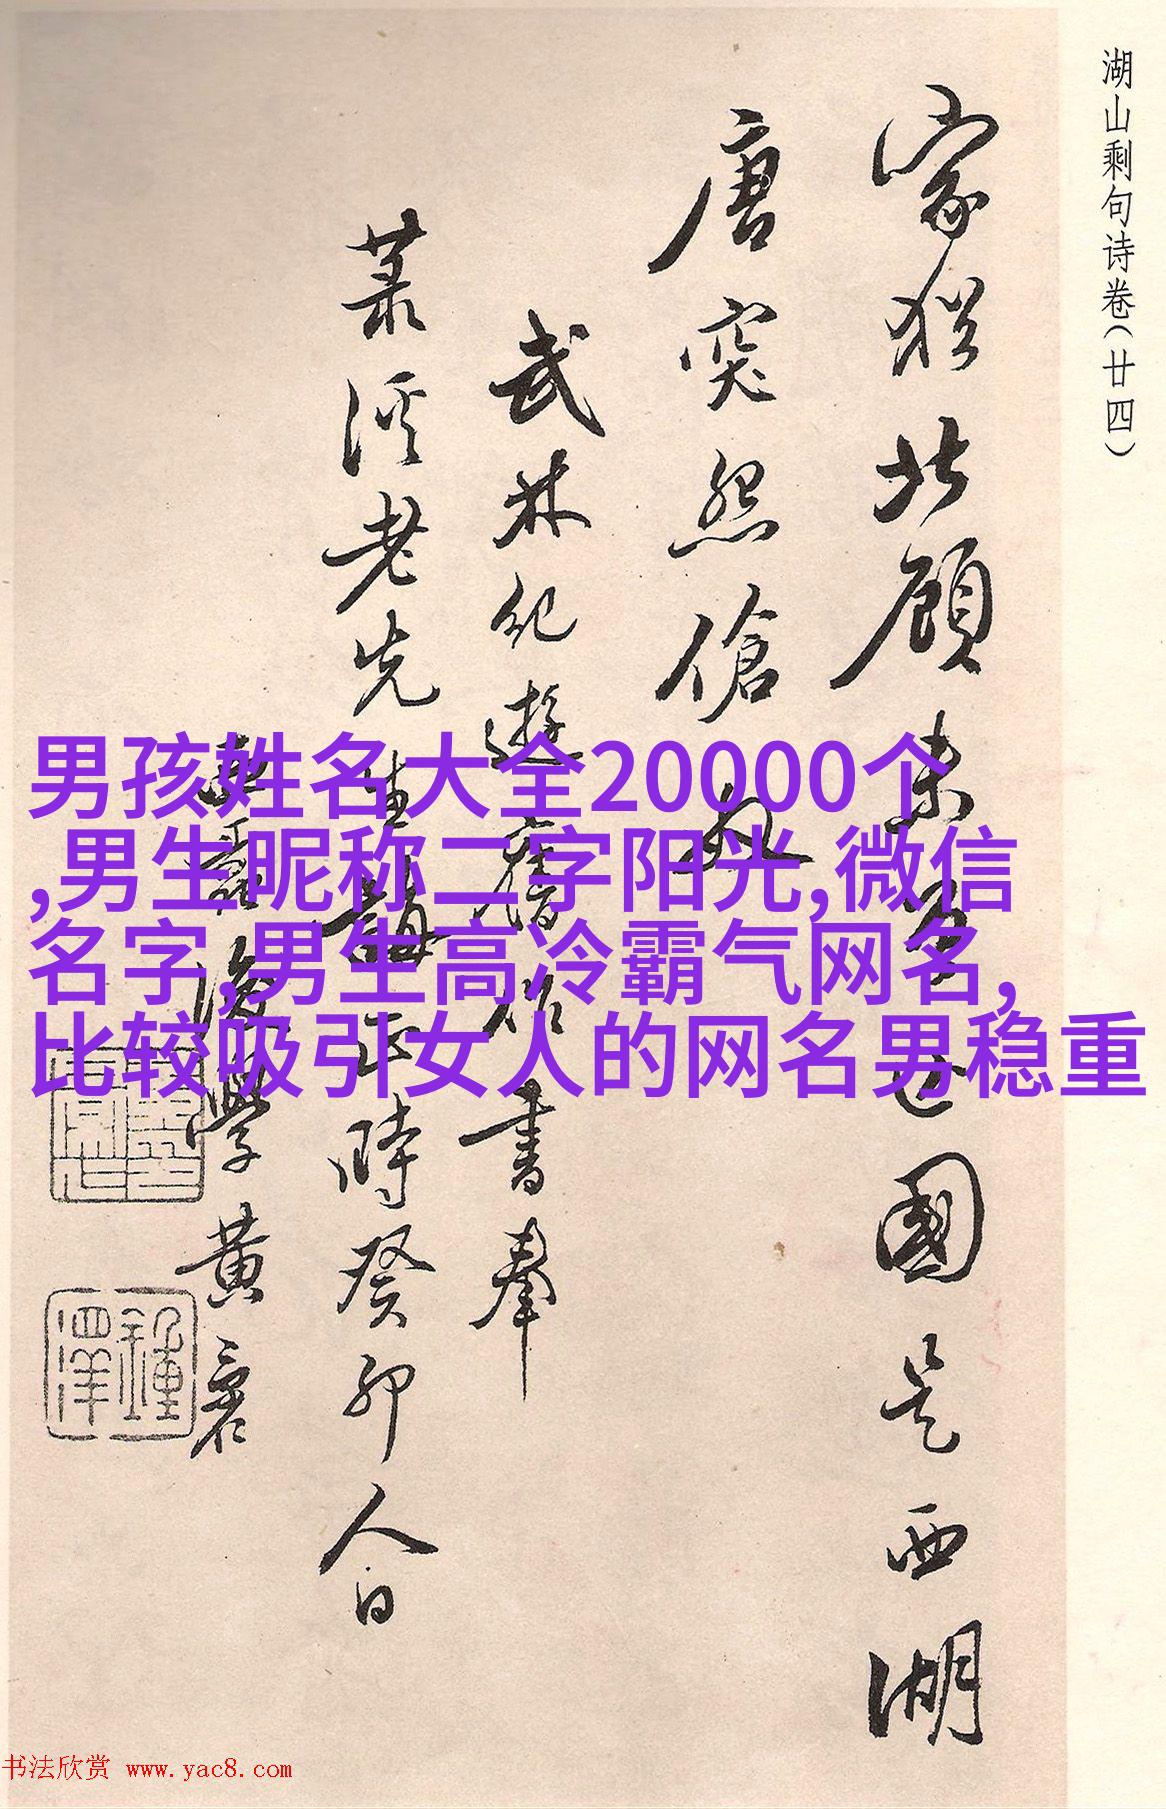 湖山剩句诗卷(廿四)
家北顧未國是西湖
唐突傖奴
武林紀遊舊作書奉
溪老先生正時癸卯人日
後學黃
男孩姓名大全20000个
,男生昵称二字阳光,微信
名字,男生高冷霸气网名,
比较吸引女人的网名男稳重
书法欣赏 www.yac8.com